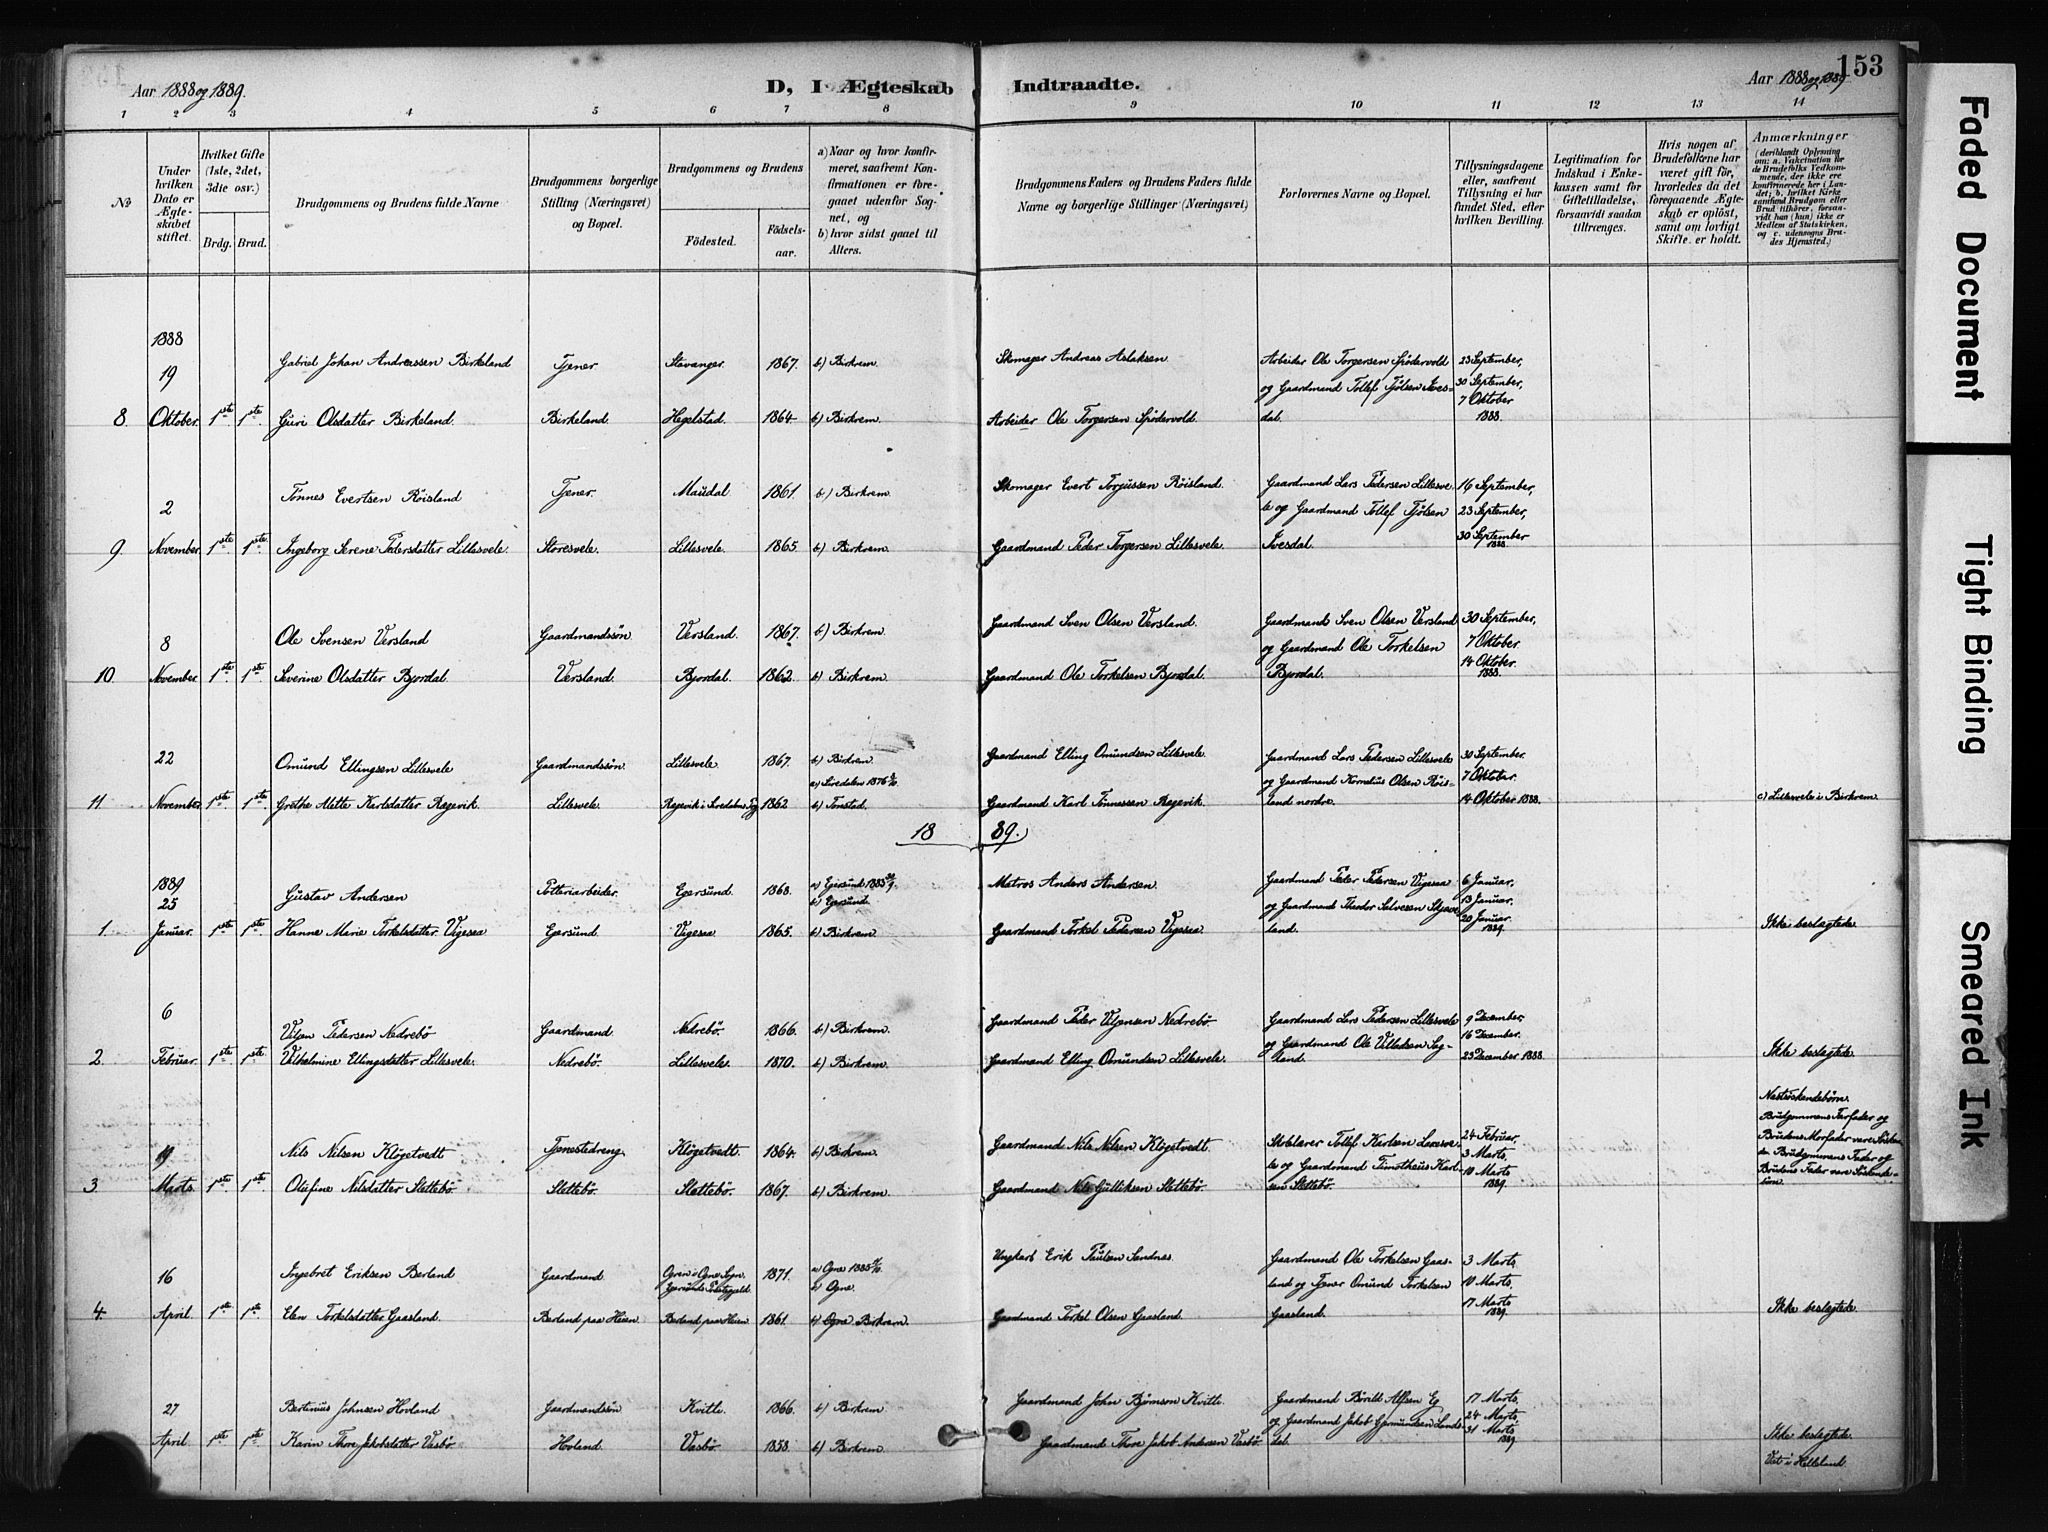 153
Aar 1888 og 1889.
D, I Ægteskab Indtraadte.
Aar 1888 og 1889.
1 2 3 4 5 6 7 8 9 10 11 12 13 14
No
Under hvilken Dato er Ægteskabet stiftet.
Hvilket Gifte (1ste, 2det, 3die osv.)
Brdg. Brud.
Brudgommens og Brudens fulde Navne
Brudgommens borgerlige Stilling (Næringsvei) og Bopæl.
Brudgommens og Brudens
Födested. Födselsaar.
a) Naar og hvor konfirmeret, saafremt Konfirmationen er foregaaet udenfor Sognet, og
b) hvor sidst gaaet til Alters.
Brudgommens Faders og Brudens Faders fulde Navne og borgerlige Stillinger (Næringsvei)
Forlovernes Navne og Bopæl.
Tillysningsdagene eller, saafremt Tillysning ei har fundet Sted, efter hvilken Bevilling.
Legitimation for Indskud i Enkekassen samt for Giftetilladelse, forsaavidt saadan tiltrænges.
Hvis nogen af Brudefolkene har været gift før, hvorledes da det foregaaende Ægteskab er oplöst, samt om lovligt Skifte er holdt.
Anmærkninger
(deriblandt Oplysning om: a. Vakcination for de Brudefolks Vedkommende, der ikke ere konfirmerede her i Landet; b. hvilket Kirkesamfund Brudgom eller Brud tilhörer, forsaavidt han (hun) ikke er Medlem af Statskirken, og c. udensogns Brudes Hjemsted.)
1888
19 Gabriel Johan Andreassen Birkeland Tjener Stavanger. 1867. b) Birkrem. Skomager Andreas Aslaksen Arbeider Ole Torgersen Spödervold 23 September,
og Gaardmand Tollef Tjölsen Ives- 30 September,
7 Oktober
8. Oktober. 1ste 1ste Guri Olsdatter Birkeland. Birkeland. Hegelstad. 1864. b) Birkrem. Arbeider Ole Torgersen Spödervold dal. 1888.
2 Tönnes Evertsen Röisland Tjener. Maudal. 1861. b) Birkrem. Skomager Evert Torjussen Röisland. Gaardmand Lars Pedersen Lillesve- 16 September,
le og Gaardmand Tollef Tjölsen 23 September,
30 September
9. November. 1ste 1ste Ingeborg Serene Pedersdatter Lillesvele. Storesvele. Lillesvele. 1865. b) Birkrem. Gaardmand Peder Torgersen Lillesvele. Ivesdal. 1888.
8 Ole Svensen Versland Gaardmandssön Versland. 1867. b) Birkrem. Gaardmand Sven Olsen Versland. Gaardmand Sven Olsen Versland 30 September,
og Gaardmand Ole Torkelsen 7 Oktober
14 Oktober.
10. November. 1ste 1ste Severine Olsdatter Bjordal. Versland. Bjordal. 1862. b) Birkrem. Gaardmand Ole Torkelsen Bjordal. Bjordal. 1888.
22 Omund Ellingsen Lillesvele Gaardmandssön. Lillesvele. 1867. b) Birkrem. Gaardmand Elling Omundsen Lillesvele. Gaardmand Lars Pedersen Lillesvele 30 September.
a) Siredalen 1876 og Gaardmand Kornelius Olsen Röis- 7 Oktober.
11 November. 1ste 1ste Grethe Mette Karlsdatter Ragevik. Lillesvele. 1862 b) Tonstad. Gaardmand Karl Tönnessen Ragevik. land nordre. 14 Oktober 1888. c) Lillesvele i Birkrem.
18 89.
1889
25 Gustav Andersen Potteriarbeider. Egersund. 1868. a) Egersund 1883 Matros Anders Andersen. Gaardmand Peder Pedersen Vigesaa 6 Januar,
b) Egersund. og Gaardmand Theodor Salvesen Skjæve- 13 Januar,
20 Januar.
1. Januar. 1ste 1ste Hanne Marie Torkelsdatter Vigesaa Egersund. Vigesaa 1865. b) Birkrem. Gaardmand Torkel Pedersen Vigesaa land. 1889. Ikke beslægtede.
6 Pedersen Nedrebö Gaardmand Nedrebö. 1866. b) Birkrem. Gaardmand Peder Nedrebö. Gaardmand Lars Pedersen Lillesvele 9 December,
og Gaardmand Ole 16 December.
2. Februar. 1ste 1ste Vilhelmine Ellingsdatter Lillesvele. Nedrebö. Lillesvele. 1870. b) Birkrem. Gaardmand Elling Omundsen Lillesvele. land. 23 December 1888. Ikke beslægtede.
Næstsöskendebörn.
Brudgommens Farfader og
19 Nils Nilsen Klögetvedt Tjenestedreng. Klögetvedt 1864. b) Birkrem. Gaardmand Nils Nilsen Klögetvedt Skolelærer Tollef Karlsen 24 Februar, Brudens Morfader vare
le og Gaardmand Timotheus Karl- 3 Marts, Brudgommens Fader og
10 Marts Brudens Fader vare Söskende-
3. Marts. 1ste 1ste Olufine Nilsdatter Slettebö. Slettebö. Slettebö. 1867. b) Birkrem. Gaardmand Nils Gulliksen Slettebö. sen Slettebö. 1889. börn.
16 Ingebret Eriksen Berland Gaardmand Ogne Sogn, Egersunds Prestegjeld. 1871. a) Ogne 1885 Ungkarl Erik Paulsen Sandnes. Gaardmand Ole Torkelsen Gaas- 3 Marts,
b) Ogne. land og Tjener Omund Torkelsen 10 Marts
17 Marts
4. April 1ste 1ste Elen Torkelsdatter Gaasland. Berland paa Heien Berland paa Heien 1861. b) Ogne Birkrem. Gaardmand Torkel Olsen Gaasland. Gaasland. 1889. Ikke beslægtede.
27 Bertinius Johnsen Hovland Gaardmandssön Kvitle. 1866. b) Birkrem Gaardmand John Björnson Kvitle Gaardmand Alfsen Eg 17 Marts,
og Gaardmand Jakob Gjermundsen Lands- 24 Marts,
31 Marts
April 1ste 1ste Karin Thore Jakobsdatter Vasbö. Hovland. Vasbö. 1858. b) Birkrem. Gaardmand Thore Jakob Andersen Vasbö. dal. 1889 Ikke beslægtede.
i Helleland.
Faded Document
Tight Binding
Smeared Ink